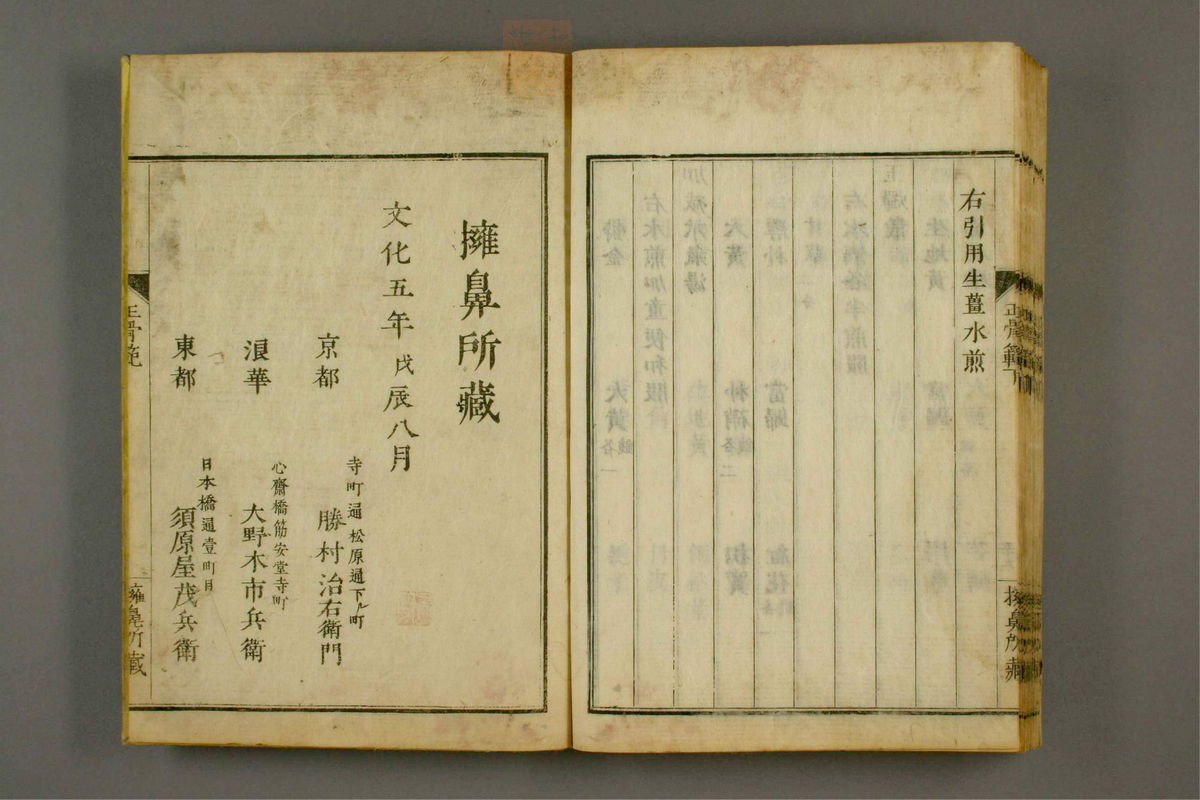 右引用生薑水煎
正骨範下
擁鼻所藏
擁鼻所藏
文化五年戊辰八月
京都
寺町通松原通下ル町
勝村治右衛門
浪華
心齋橋筋安堂寺町
大野木市兵衛
東都
日本橋通壹町目
須原屋茂兵衛
正骨範
擁鼻所藏